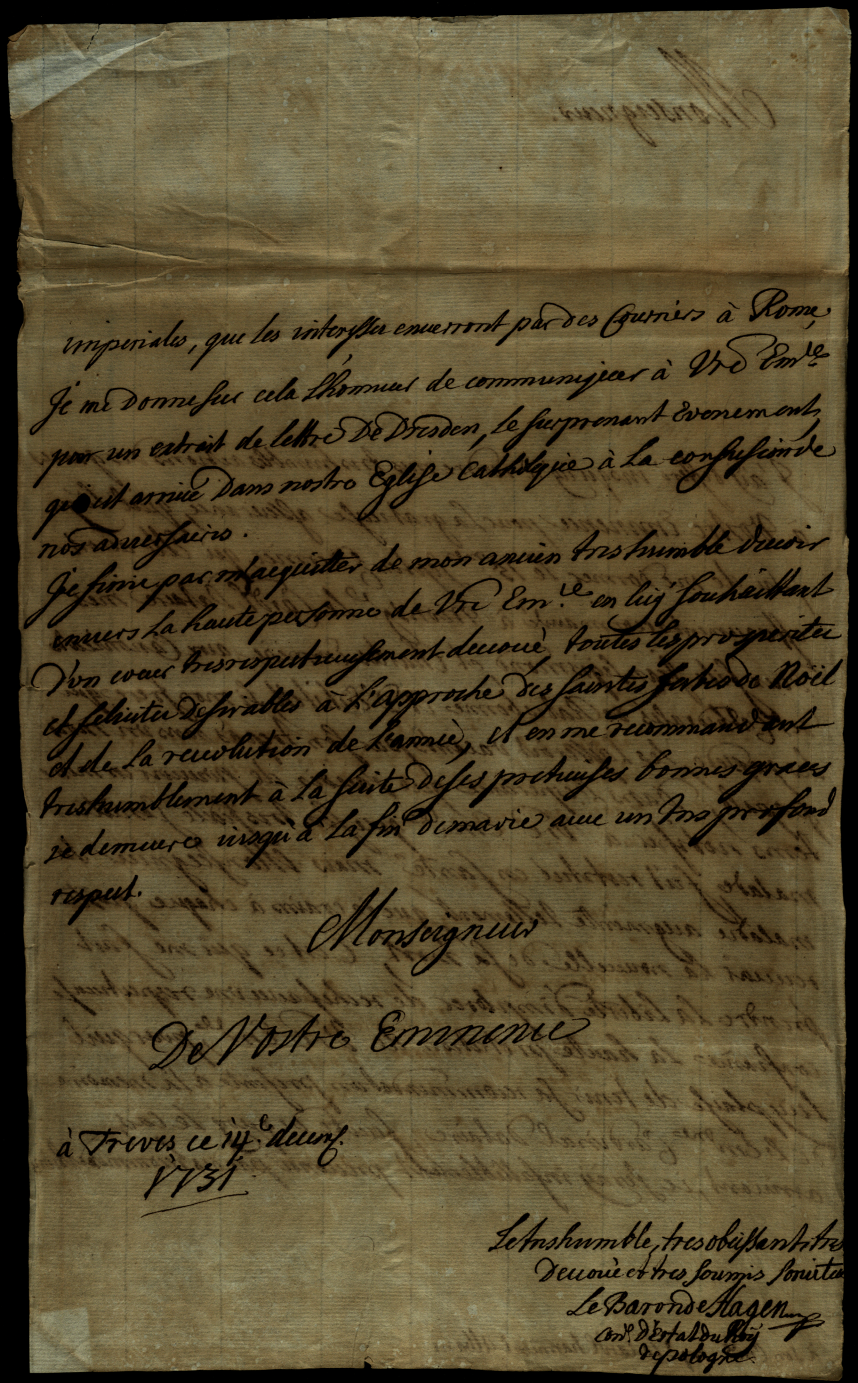 imperiales, que les interesses enverront par des Courriers à Rome,
Je me donne sur cela l'honneur de communiquer à Vre Em.ce
par un extrait de lettre De Dresden, le surprenant Evenement,
qui est arrivé Dans nostre Eglise Catholique à la confusion de
nos adversaires.
Je finie par m'acquitter de mon ancien tres humble devoir
envers la haute personne de Vre Em.ce en luy souhaittant
D'un coeur tres respectueusement devoué, toutes les prosperites
et felicites desirables à l'approche des saintes festes de Noël
et de la revolution de l'année, et en me recommandant
treshumblement à la suite de ses pretieuses bonnes graces
je demeure jusqu'à la fin de ma vie avec un tres profond
respect.
Monseigneur
De Vostre Eminence
à Treves ce 14.e decemb.
1731
Le treshumble, tres obeissant, tres
devoué et tres soumis serviteur
Le Baron de Hagen
con.r d'Estat du Roÿ
de pologne.